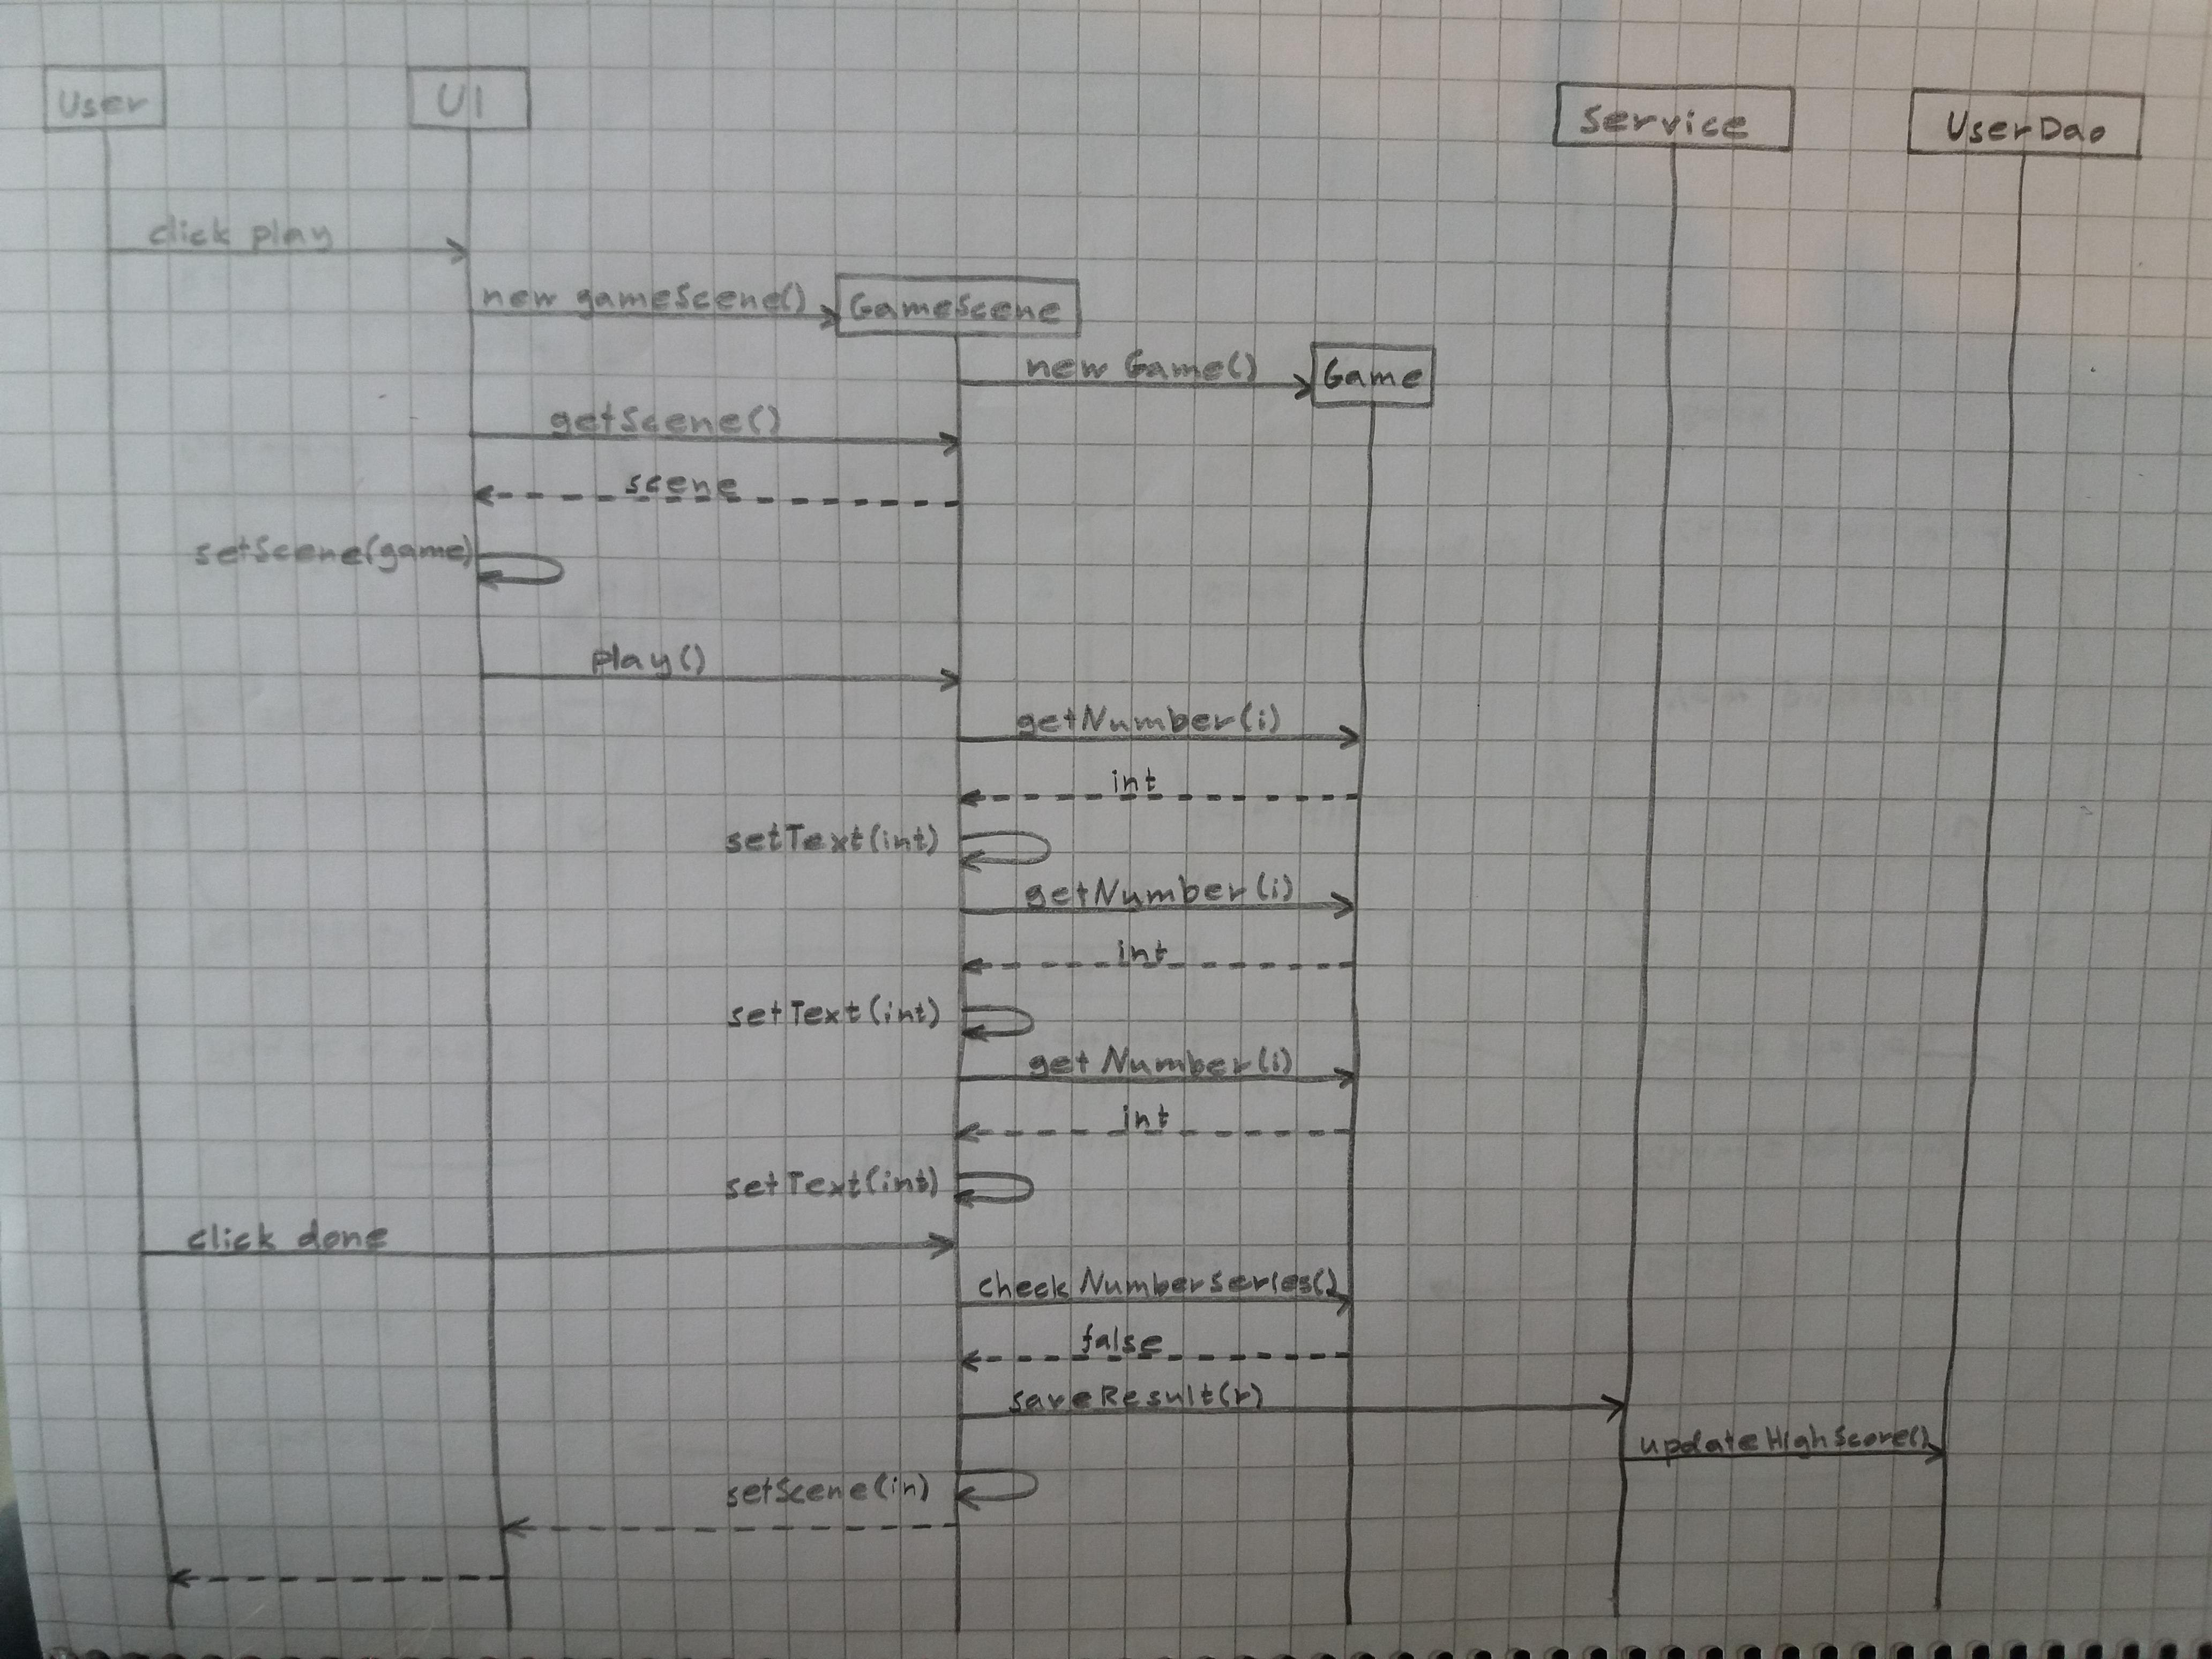 User
UI
Service
UserDao
click play
new gameScene()
GameScene
new Game()
Game
getScene()
scene
setScene(game)
play()
getNumber(i)
int
setText(int)
getNumber(i)
int
setText(int)
getNumber(i)
int
setText(int)
click done
checkNumberSeries()
false
saveResult(r)
updateHighScore()
setScene(in)